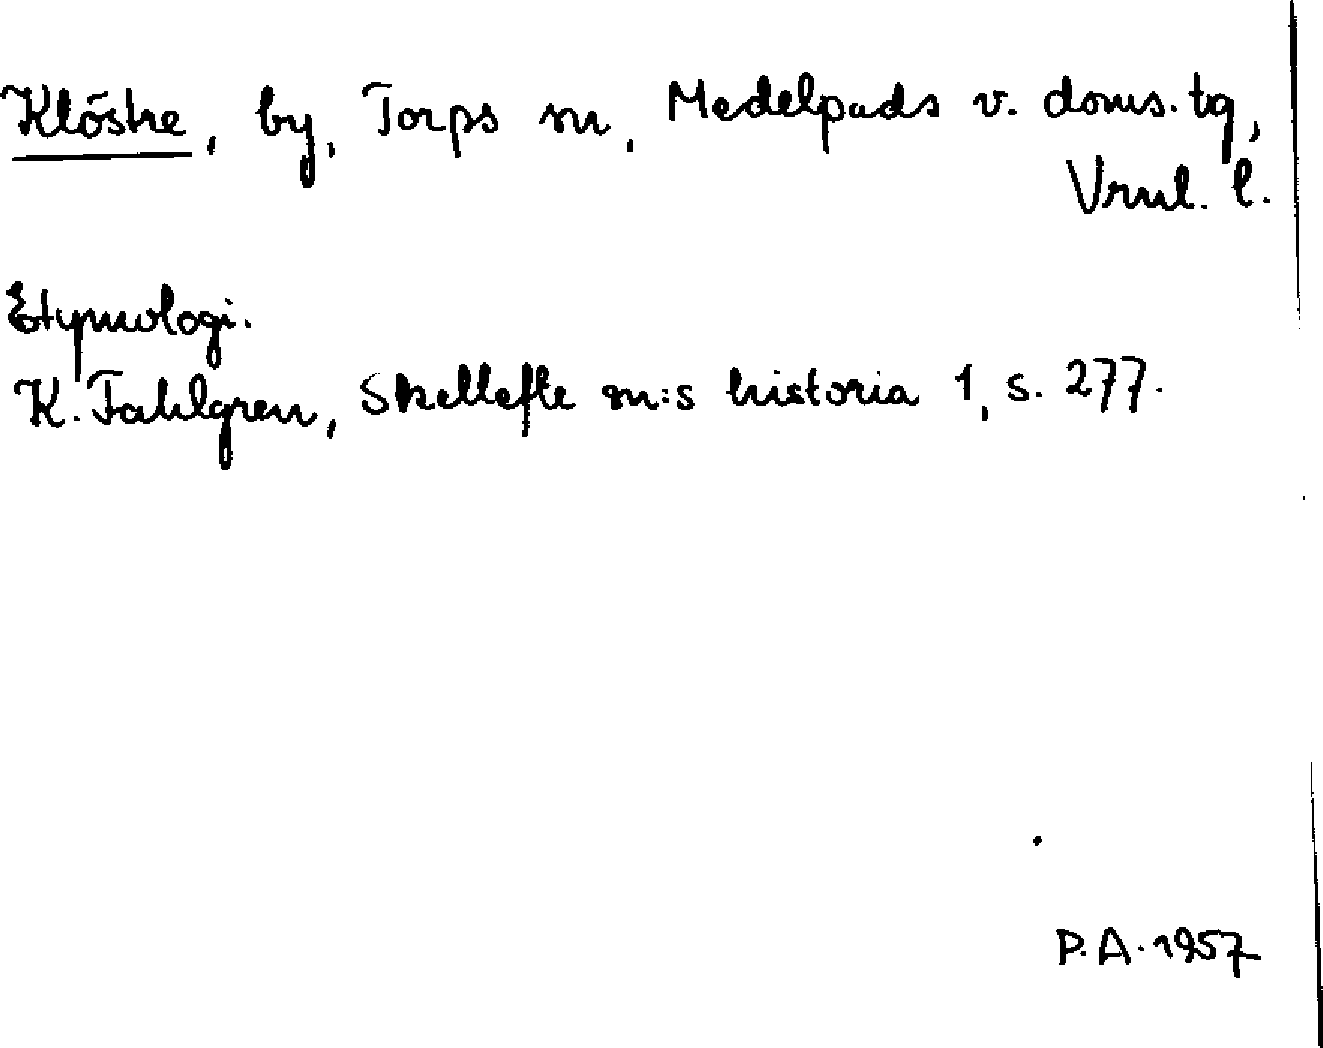 Klöstre, by, Torps sn, Medelpads v. doms. tg,
Vrnl. l.
Etymologi.
K. Fahlgren, Skellefte sn:s historia 1, s. 277.
P. A. 1957